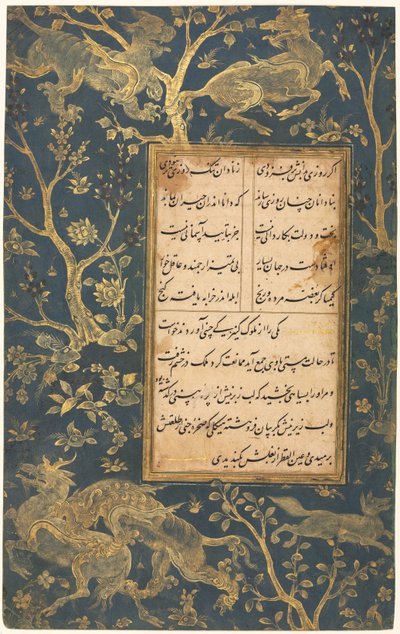 اکر روزی بدانش بر فزودی زنادان تنک روزی تر نبودی
بنادانان چنان روزی رساند که دانا اندران حیران بماند
بخت و دولت بکاردانی نیست جز بتایید آسمانی نیست
اوفتادست در جهان بسیار بی تمیز ارجمند و عاقل خوار
کیمیاکر بغصه مرده و رنج ابله اندر خرابه یافته کنج
یکی را از ملوک کنیزکی چینی آوردند خواست
تا در حالت مستی با وی جمع آید ممانعت کرد ملک در خشم رفت
و مر او را بسیاهی بخشید که لب زبرینش از پره بینی درکذشته بود
و لب زیرینش بکریبان فروهشته هیکلی که صخر جنی از طلعتش
برمیدی عین القطر از بغلش بکندیدی